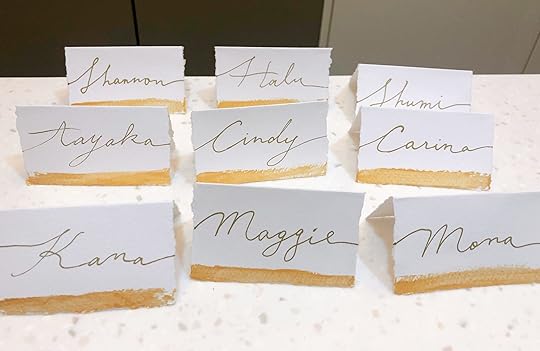 Shannon
Halu
Shumi
Aayaka
Cindy
Carina
Kana
Maggie
Mona